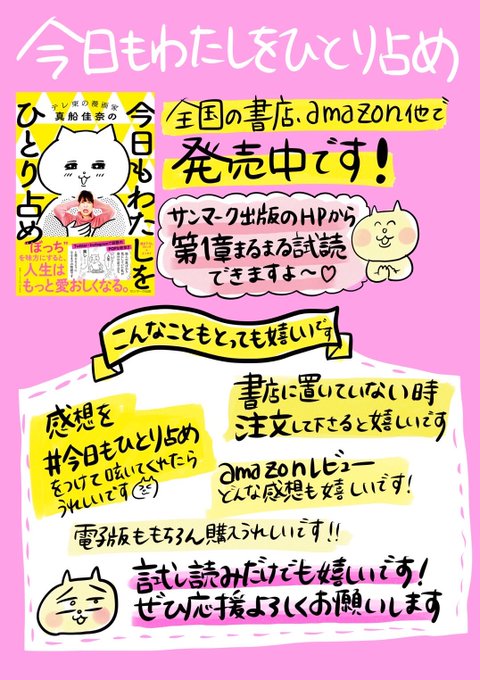 今日もわたしをひとり占め
テレ東の漫画家
真船佳奈の
今日もわたしを
ひとり占め
"ぼっち"
を味方にすると、
人生は
もっと愛おしくなる。
全国の書店、amazon他で
発売中です!
サンマーク出版のHPから
第1章まるまる試読
できますよ〜♡
こんなこともとっても嬉しいです
書店に置いていない時
注文して下さると嬉しいです
感想を
#今日もひとり占め
をつけて呟いてくれたら
うれしいです
amazonレビュー
どんな感想も嬉しいです!
電子版ももちろん購入うれしいです!!
試し読みだけでも嬉しいです!
ぜひ応援よろしくお願いします